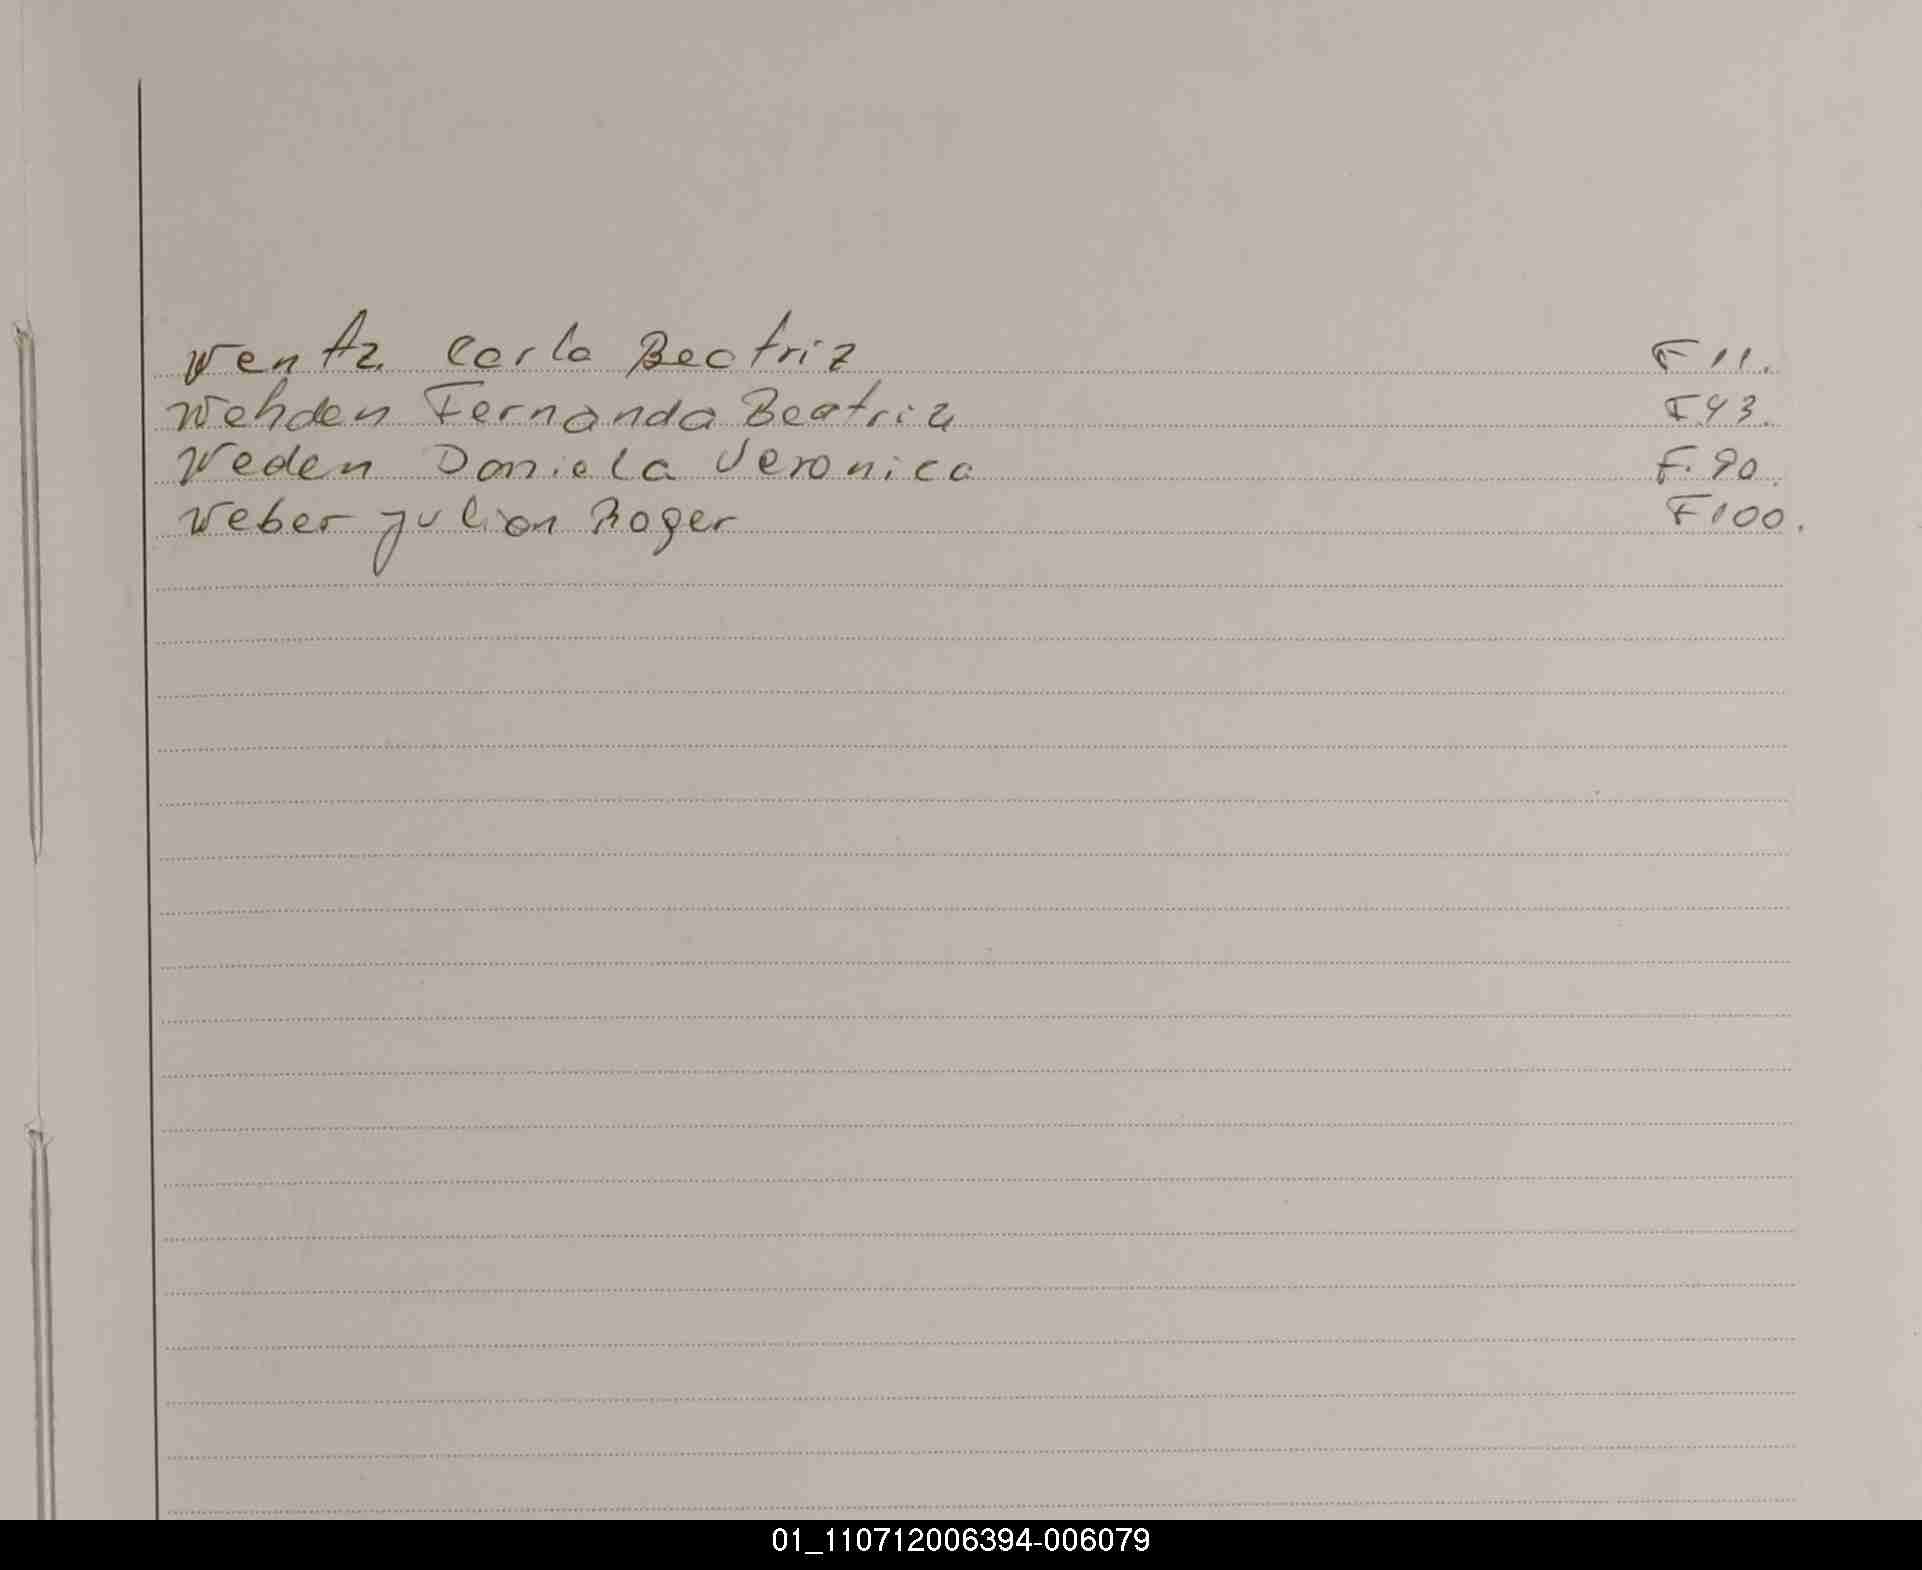 Wentz Carla Beatriz F 11.
Wehden Fernanda Beatriz F 43.
Weden Daniela Veronica F. 90.
Weber Julian Roger F 100.
01_110712006394-006079